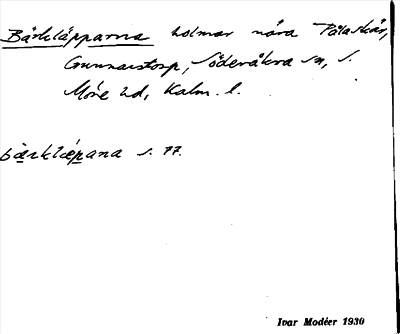 Bärkläpparna holmar nära Påla skär,
Gunnarstorp, Söderåkra sn, S.
Möre hd, Kalm. l.
bärkläpana s. 77.
Ivar Modéer 1930